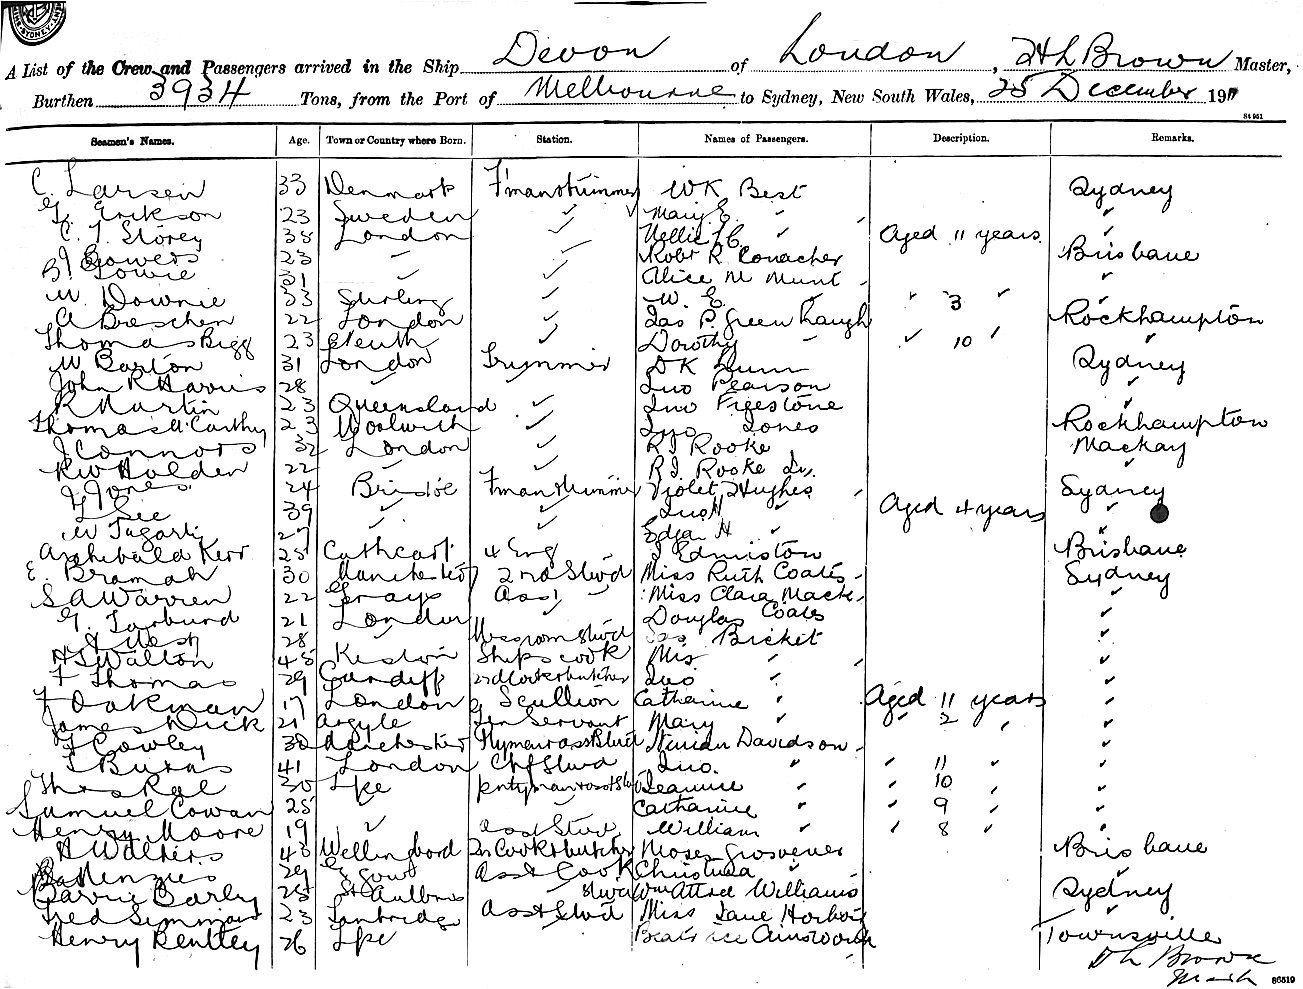 A List of the Crew and Passengers arrived in the Ship Devon of London, H L Brown Master,
Burthen 3934 Tons, from the Port of Melbourne to Sydney, New South Wales, 25 December 191
84951
Seamen's Names. Age. Town or Country where Born. Station. Names of Passengers. Description. Remarks.
C. Larsen 33 Denmark F'man & trimmer WK Best Sydney
G. Erikson 23 Sweden ✓ Mary E. "
C. T. Storey 38 London ✓ Nellie " Aged 11 years "
J Gowers 23 " ✓ Robt R. Conacher Brisbane
B Lowrie 31 ✓ Alice M Munt "
W. Downie 33 Stirling ✓ W. E. " " 3 " "
A Beschen 22 London ✓ Jas P. Greenhaugh Rockhampton
Thomas Bigg 23 ✓ Dorothy " " 10 " "
W Barton 31 London Trimmer DK Sydney
John R Harris 28 " Jno Pearson "
R Martin 23 Queensland ✓ Jno "
Thomas McCarthy 23 Woolwich ✓ Jno Jones Rockhampton
J Connors 32 London ✓ RJ Rooke Mackay
RW Holden 22 " ✓ RJ Rooke Jr. "
J Jones 24 Bristol F'man & trimmer Violet Hughes Sydney
L See 39 " ✓ Jno H " Aged 4 years "
W 27 " ✓ Edgar H " "
Archibald Kerr 25 Cathcart 4 Eng J Edmiston Brisbane
E. Bramah 30 Manchester 2nd Stwd Miss Ruth Coates Sydney
S A Warren 22 Grays Asst Miss Clara "
G. Tarbund 21 London ✓ Douglas Coates "
A West 28 " Messroom Stwd Jas Bicket "
H S Walton 45 Ships Cook Mrs " "
F Thomas 29 Cardiff 2nd Cook & butcher Jno " "
F Oakman 17 London Scullion Catharine " Aged 11 years "
James Dick 21 Argyle Gen Servant Mary " " 2 " "
F Cowley 30 Manchester Davidson "
F Burns 41 London Chf Stwd Jno. " " 11 " "
Thos Rae 30 Lpe Jeannie " " 10 " "
Samuel Cowan 25 Catharine " " 9 " "
Henry Moore 19 " asst Stwd William " " 8 " "
A Walters 43 Wellingbord 2n Cook & butcher Moses Grosvener Brisbane
29 Asst Cook Christina "
Barly 25 Stwd Wm Attree Williams Sydney
Fred Simmons 23 Tonbridge Asst Stwd Miss Jane "
Henry Bentley 26 Lpe Beatrice Ainsworth Townsville
H L Browne
86519